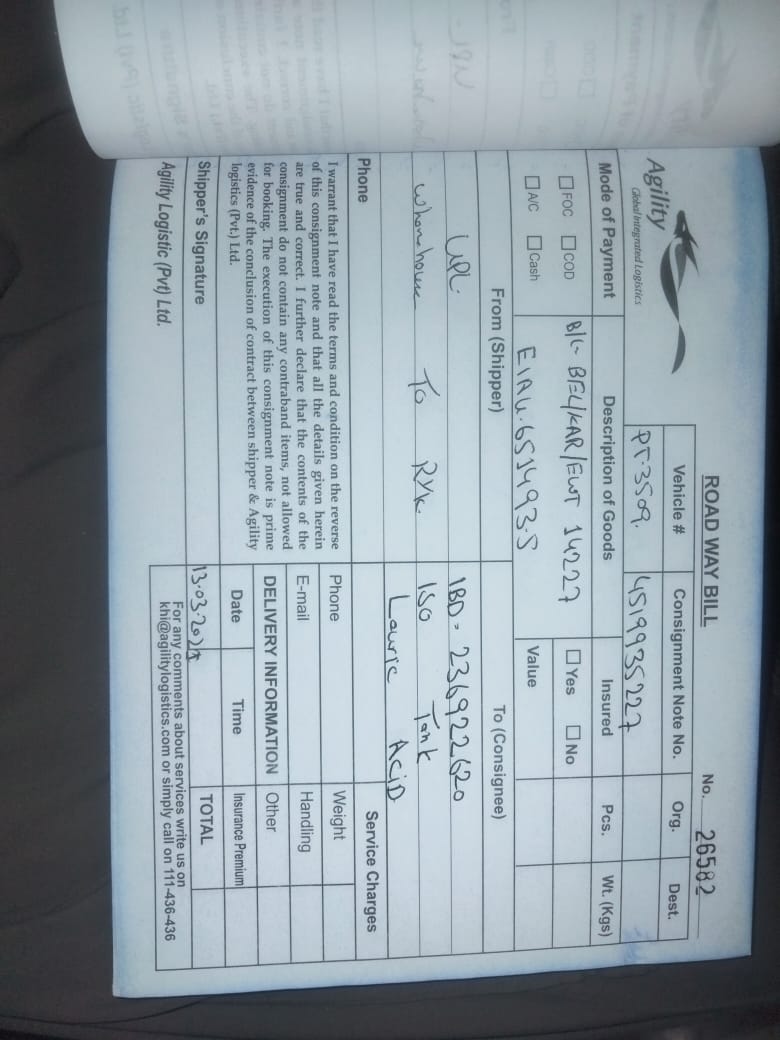 ROAD WAY BILL
No. 26582
Agility
Global Integrated Logistics
Vehicle #
Consignment Note No.
Org.
Dest.
PT-3509.
4519935227
Mode of Payment
Description of Goods
Insured
Pcs.
Wt. (Kgs)
FOC
COD
B/L- BEL/KAR/EWT 14227
Yes
No
A/C
Cash
EIAU.651493-5
Value
From (Shipper)
To (Consignee)
UPL
IBD- 236922620
To RYK.
ISO Tank
Lauric ACiD
Phone
Service Charges
I warrant that I have read the terms and condition on the reverse
of this consignment note and that all the details given herein
are true and correct. I further declare that the contents of the
consignment do not contain any contraband items, not allowed
for booking. The execution of this consignment note is prime
evidence of the conclusion of contract between shipper & Agility
logistics (Pvt.) Ltd.
Phone
Weight
E-mail
Handling
DELIVERY INFORMATION
Other
Date
Time
Insurance Premium
Shipper's Signature
13-03-202
TOTAL
Agility Logistic (Pvt) Ltd.
For any comments about services write us on
khi@agilitylogistics.com or simply call on 111-436-436